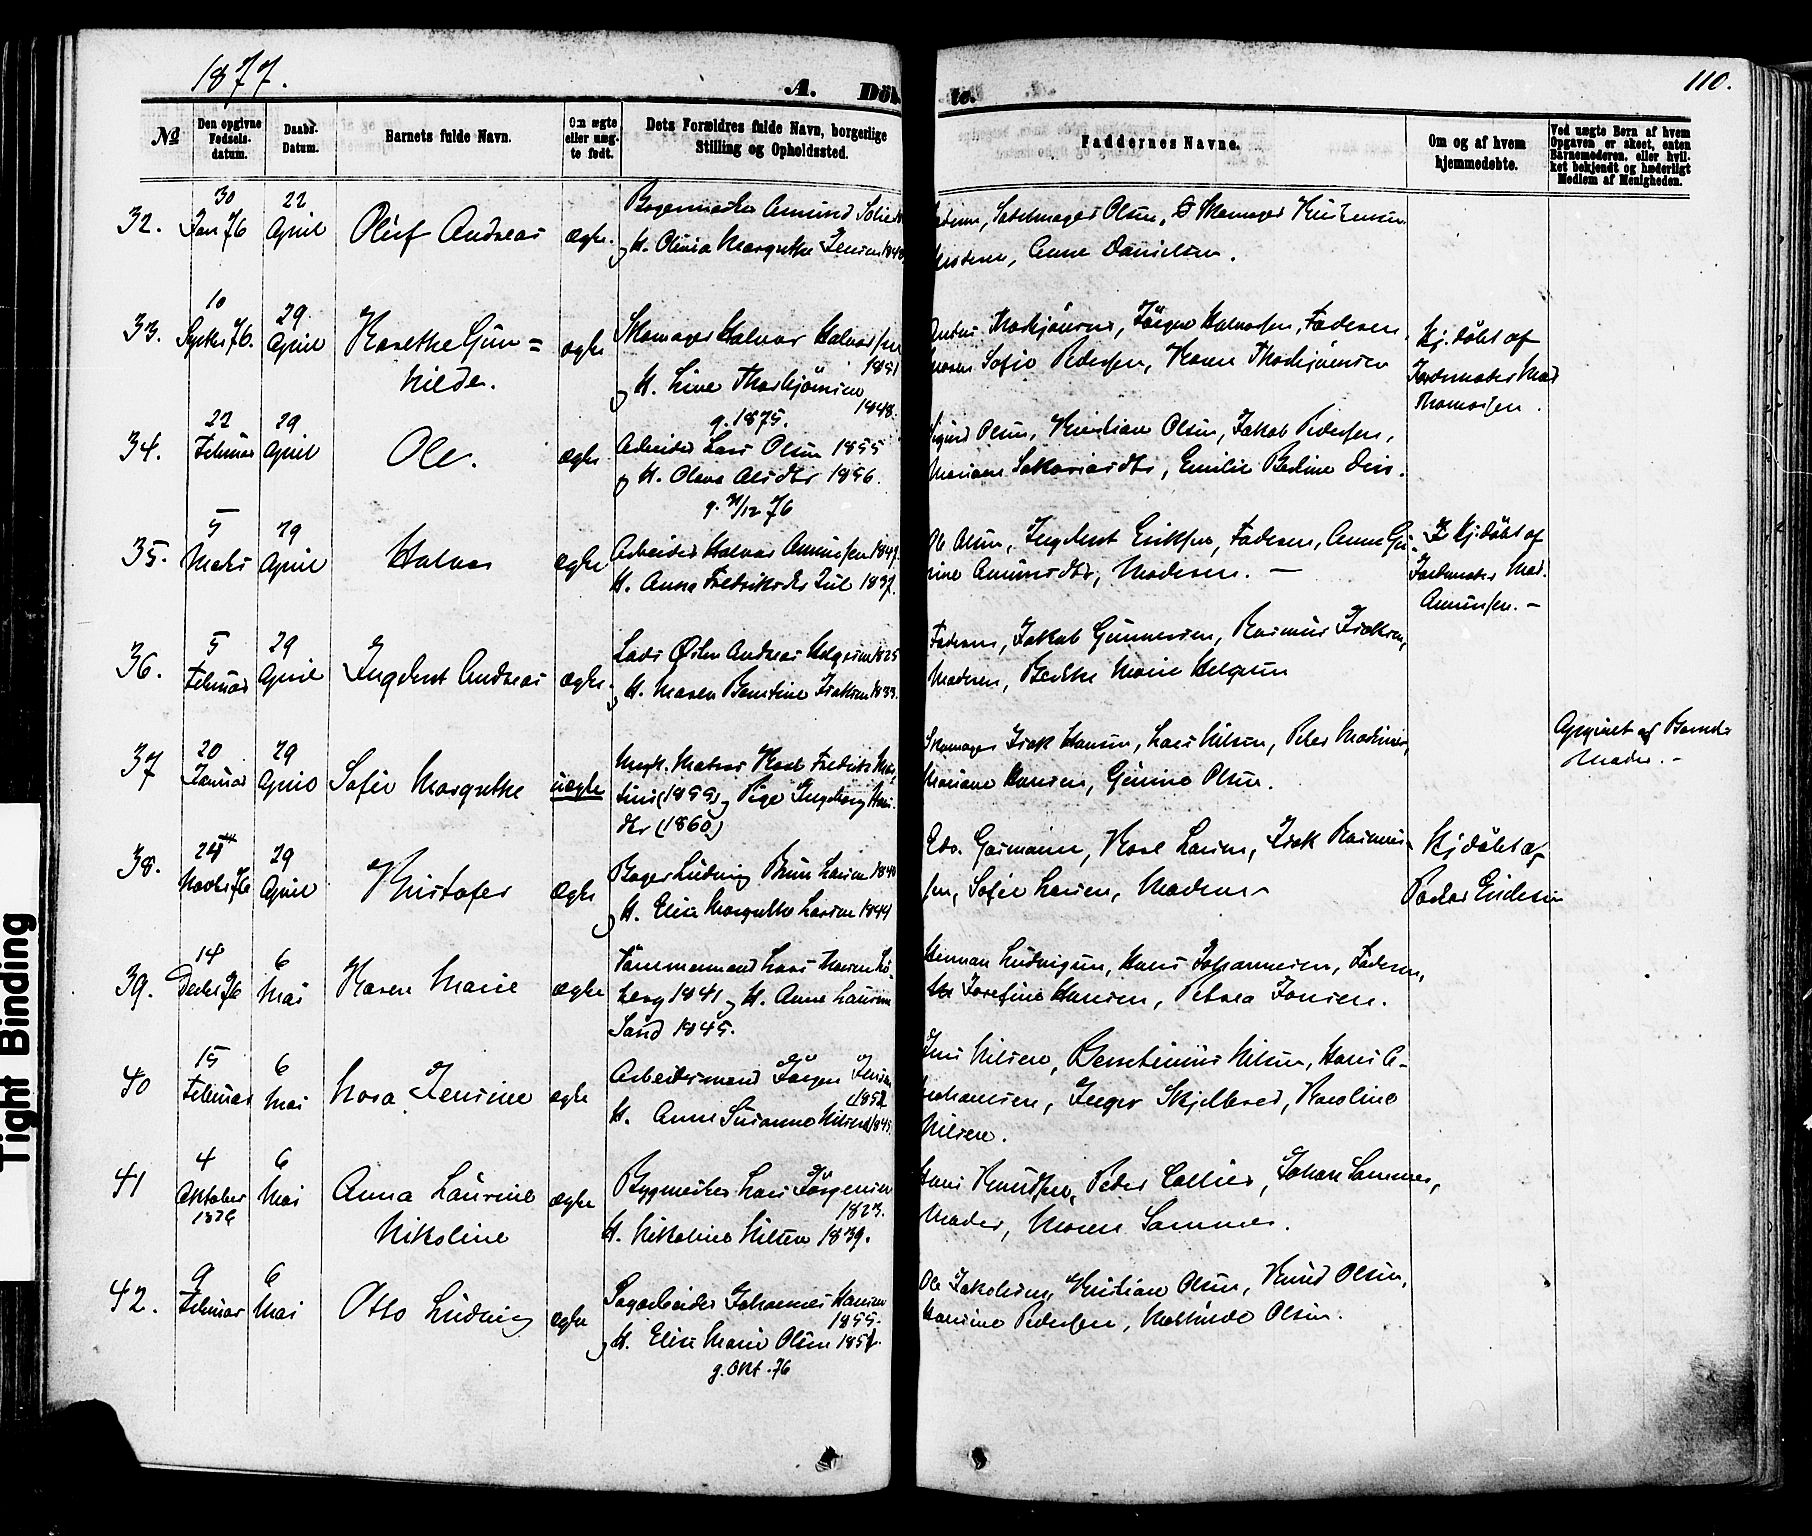 1877.
A. Döb
te.
110.
No
Den opgivne Fødsels-datum.
Daabs-Datum.
Barnets fulde Navn.
Om ægte eller uæg-te født.
Dets Forældres fulde Navn, borgerlige Stilling og Opholdssted.
Faddernes Navne.
Om og af hvem hjemmedøbte.
Ved uægte Børn af hvem Opgaven er skeet, enten Barnemoderen, eller hvil-ket bekjendt og hæderligt Medlem af Menigheden.
32.
30 Jan 76
22 April
Oluf Andreas
ægte.
Amund
og H. Olivia Margrethe Jensen 1840
Sadelmager Olsen, Skomager Kristensen
Anne Danielsen.
33.
10 Septbr 76.
29 April
Karethe Gun=
hilde.
ægte
Skomager Halvor Halvorsen
1851
og H. Line Thorbjörnsen
1848.
g. 1875.
Thorbjörnsen, Jörgen Halvorsen, Faderen
Sofie Pedersen, Karen Thorbjörnsen
Hj. döbt af
Jordemoder Mad
Thomassen.
34.
22 Februar
29 April
Ole.
ægte
Arbeider Lars Olsen 1855
og H. Olava Olsdtr 1856.
g. /12 76
Sigurd Olsen, Kristian Olsen, Jakob Pedersen,
Mariane Sakariasdtr, Emilie Bertine
35.
5 Marts
29 April
Halvor
ægte
Arbeider Halvor Amunsen 1849.
H. Anna Fredriksdtr Jul 1837.
Ole Olsen, Ingebret Eriksen, Faderen, Anne Gu-
rine Amundsdtr, Moderen. —
Hj döbt af
Jordemoder Mad.
Amunsen. —
36.
5 Februar
29 April
Ingebret Andreas
ægte.
Lods Andreas Helgesen 1825
og H. Maren Berntine Isaksen 1833.
Faderen, Jakob Gunnersen, Rasmus Isaksen,
Moderen, Berthe Marie Helgesen
37
20 Januar
29 April
Sofie Margrethe
uægte
Ungk. Matros Karl Fredrik Mar-
tinis (1855) og Pige Ingeborg Han-
dtr (1860)
Skomager Isak Hansen, Lars Nilsen, Peter Martinsen,
Mariane Hansen, Gunine Olsen.
Opgivet af Barnets
Moder. —
38.
24 Novbr 76
29 April
Kristofer
ægte
Bager Ludvig Brun Larsen 1840
og H. Elise Margrethe Larsen 1844
Edv. Garmann, Karl Larsen, Isak Rasmus-
sen, Sofie Larsen, Moderen
Hj döbt af
39.
14 Decbr 76
6 Mai
Karen Marie
ægte
Tömmermand Lars Hansen
berg 1841 og H. Anne Laurine
Sand 1845.
Herman Ludvigsen, Hans Johannesen, Faderen,
Josefine Hansen, Petrea Jonsen.
40
15 Februar
6 Mai
Nora Jensine
ægte
Arbeidsmand Jörgen Jensen
1852
H. Anne Susanne Nilsen 1845.
Jens Nilsen, Berntinius Nilsen, Hans A-
brahamsen, Inger Skjelbred, Karoline
Nilsen.
41
4 Oktober 1876
6 Mai
Anna Laurine
Nikoline
ægte
Bygmester Lars Jörgensen
1823.
H. Nikoline Nilsen 1839.
Hans Knudsen, Peter Collier, Johan Sammer,
Moder, Maren Sammer.
42.
9 Februar
6 Mai
Otto Ludvig
ægte
Sagarbeider Johannes Hansen
1855.
og H. Elise Marie Olsen 1857.
g. Okt. 76
Ole Jakobsen, Kristian Olsen, Knud Olsen,
Hansine Pedersen, Mathilde Olsen.
Tight Binding